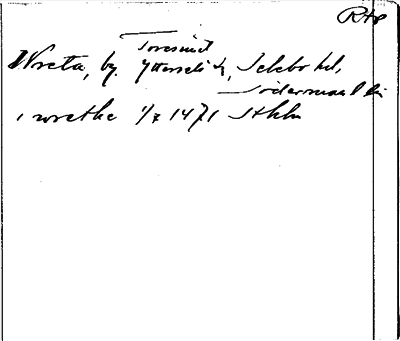 RAp
Toresund
Wreta, by. Ytterselö sn, Selebo hd,
Södermanl län
i wretha 1/7 1471 Sthlm